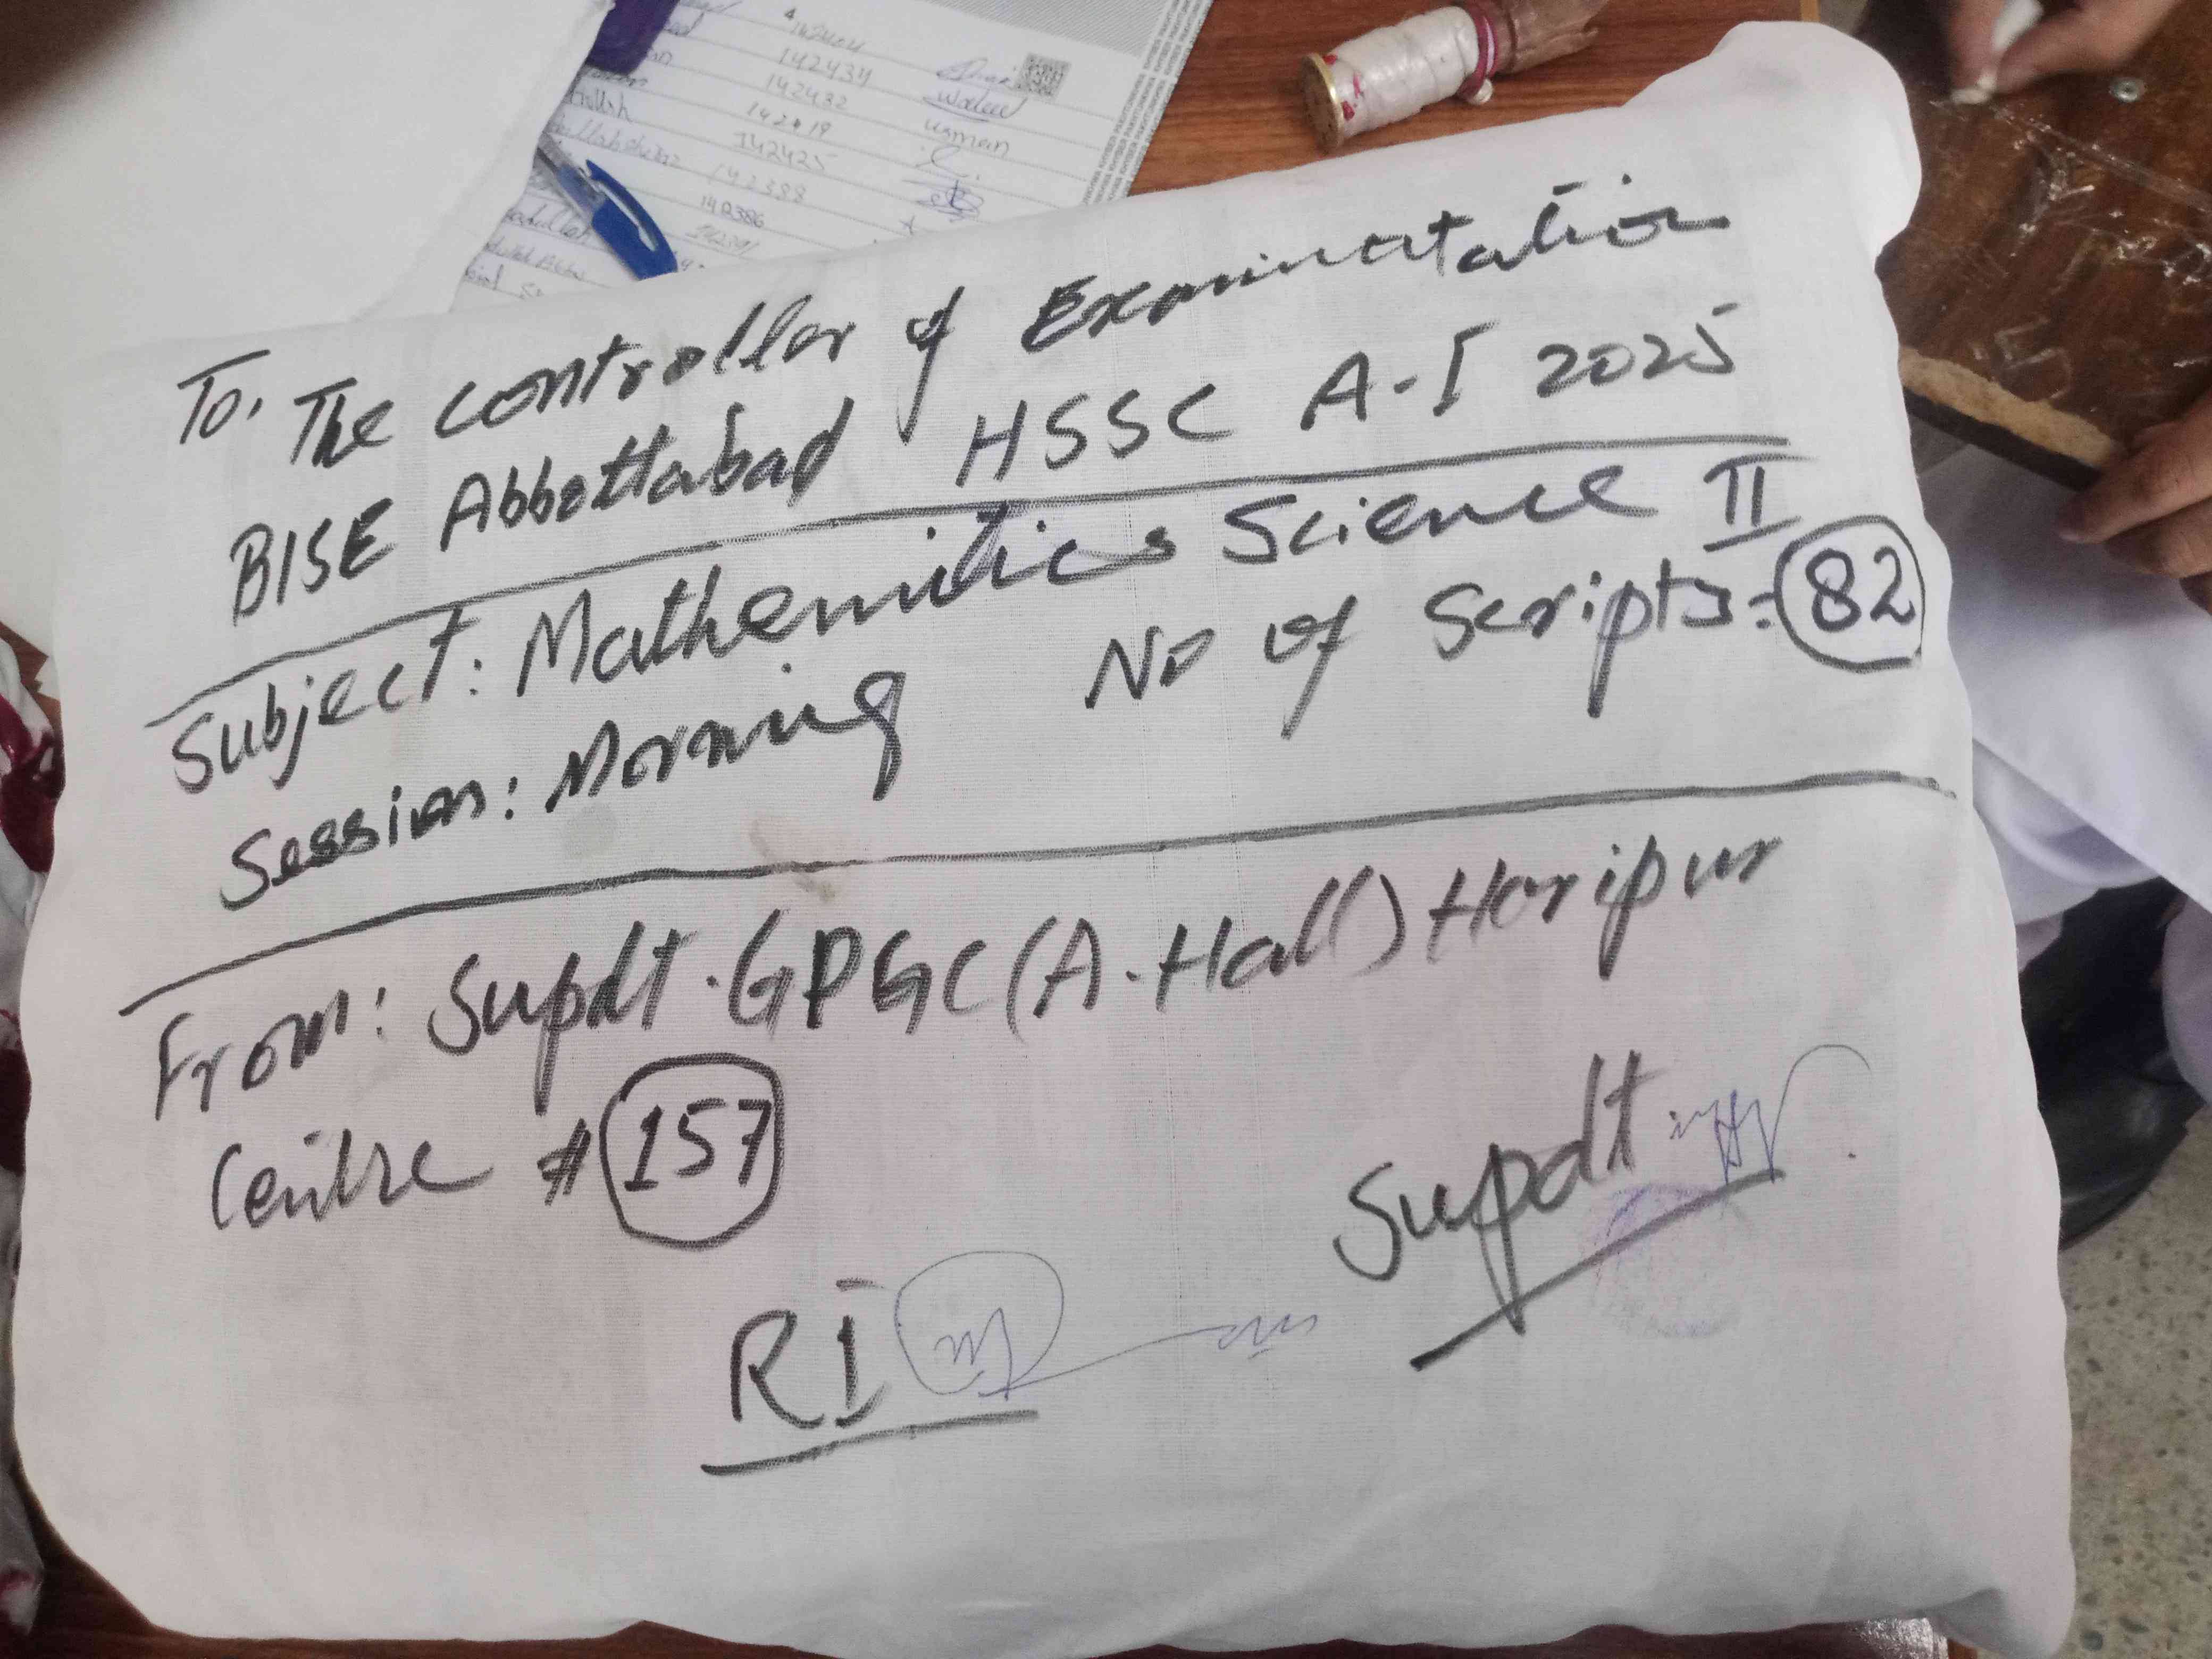 142434
142432
142419
142425
142388
142386
Waleed
usman
To, The controller of Examintation
BISE Abbottabad HSSC A-I 2025
Subject: Mathemitics Science II
Session: Morning No of Scripts:- 82
From: Supdt. GPGC (A-Hall) Haripur
Centre # 157
Supdt
RI